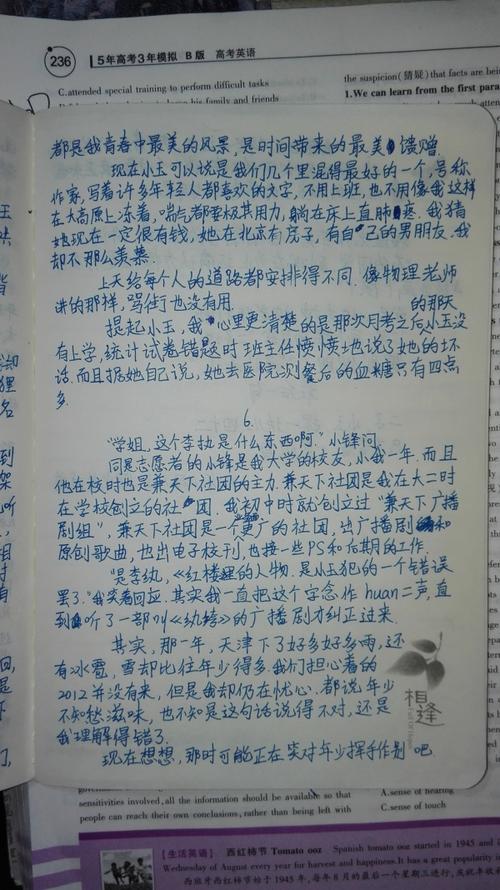 236 5年高考3年模拟 B版 高考英语
C.attended special training to perform difficult tasks
his family and friends
the suspicion(猜疑) that facts are being
1.We can learn from the first para
都是我青春中最美的风景,是时间带来的最美馈赠.
现在小玉可以说是我们几个里混得最好的一个,号称
作家,写着许多年轻人都喜欢的文字,不用上班,也不用像我这样
在大高原上冻着,喘气都要极其用力,躺在床上直肺疼.我猜
她现在一定很有钱,她在北京有房子,有自己的男朋友.我
却不那么羡慕.
上天给每个人的道路都安排得不同.像物理老师
讲的那样,骂街也没有用.
提起小玉,我心里更清楚的是那次月考之后小玉没的那天
有上学,统计试卷错题时班主任愤愤地说了她的坏
话.而且据她自己说,她去医院测餐后的血糖只有四点
多.
6.
“学姐,这个李纨是什么东西啊.”小锋问.
同是志愿者的小锋是我大学的校友,小我一年.而且
他在校时也是兼天下社团的主力.兼天下社团是我在大二时
在学校创立的社团.我初中时就创立过“兼天下广播
剧组”,兼天下社团是一个更广的社团,出广播剧和
原创歌曲,也出电子校刊,也接一些PS和后期的工作.
“是李纨,《红楼》里的人物.是小玉犯的一个错误
罢了.”我笑着回应.其实我一直把这个字念作huan二声,直
到听了一部叫《纨绔》的广播剧才纠正过来.
其实,那一年,天津下了好多好多雨,还
有冰雹,雪却比往年少得多.我们担心着的
2012并没有来,但是我却仍在忧心.都说年少
不知愁滋味,也不知是这句话说得不对,还是
我理解得错了.
现在想想,那时可能正在实对年少挥手作别吧.
相逢
sensitivities involved, all the information should be available so that
people can reach their own conclusions, rather than being left with
A.sense of hearing
C.sense of touch
【生活英语】 西红柿节 Tomato ooz Spanish tomato ooz started in 1945 and i
Wednesday of August every year for harvest and happiness.It has a great popularity
西班牙西红柿节始于1945年,每年8月的最后一个星期三进行,